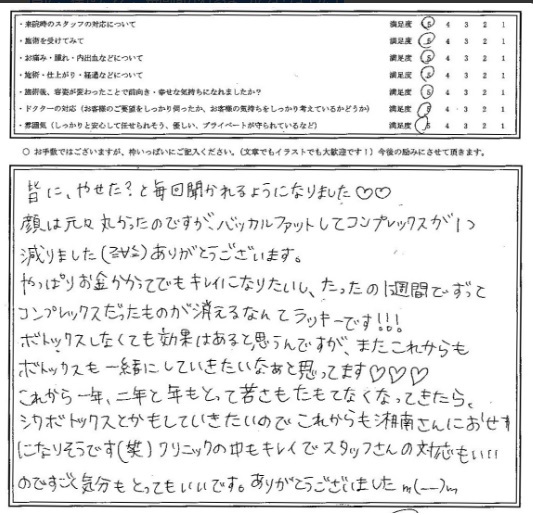 ・来院時のスタッフの対応について 満足度 5 4 3 2 1
・施術を受けてみて 満足度 5 4 3 2 1
・お痛み・腫れ・内出血などについて 満足度 5 4 3 2 1
・施術・仕上がり・経過などについて 満足度 5 4 3 2 1
・施術後、容姿が変わったことで前向き・幸せな気持ちになれましたか? 満足度 5 4 3 2 1
・ドクターの対応(お客様のご要望をしっかり伺ったか、お客様の気持ちをしっかり考えているかどうか) 満足度 5 4 3 2 1
・雰囲気(しっかりと安心して任せられそう、優しい、プライベートが守られているなど) 満足度 5 4 3 2 1
○ お手数ではございますが、枠いっぱいにご記入ください。(文章でもイラストでも大歓迎です!)今後の励みにさせて頂きます。
皆に、やせた?と毎回聞かれるようになりました♡♡
顔は元々丸かったのですが、バッカルファットしてコンプレックスが1つ
減りました ありがとうございます。
やっぱりお金かかってでもキレイになりたいし、たったの1週間でずっと
コンプレックスだったものが消えるなんてラッキーです!!!
ボトックスしなくても効果はあると思うんですが、またこれからも
ボトックスも一緒にしていきたいなぁと思ってます♡♡♡
これから一年、二年と年もとって若さもたもてなくなってきたら。
シワボトックスとかもしていきたいのでこれからも湘南さんにおせわ
になりそうです(笑)クリニックの中もキレイでスタッフさんの対応もいい
のですごく気分もとってもいいです。ありがとうございました m(__)m